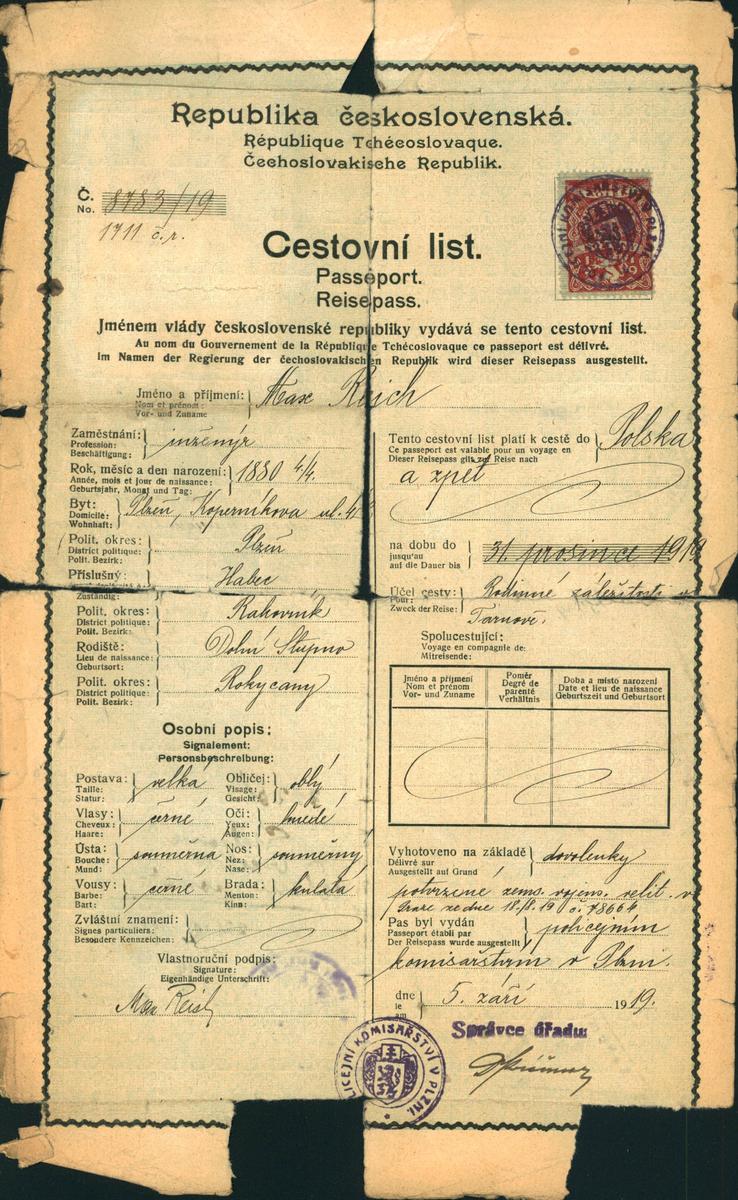 Republika československá.
République Tchécoslovaque.
Čechoslovakische Republik.
Č.
No. 8783/19
1711 č. r.
Cestovní list.
Passeport.
Reisepass.
Jménem vlády československé republiky vydává se tento cestovní list.
Au nom du Gouvernement de la République Tchécoslovaque ce passeport est délivré.
Im Namen der Regierung der čechoslovakischen Republik wird dieser Reisepass ausgestellt.
Jméno a příjmení: Max Reich
Nom et prénom:
Vor- und Zuname
Zaměstnání: inženýr
Profession:
Beschäftigung:
Rok, měsíc a den narození: 1880 4/4.
Année, mois et jour de naissance:
Geburtsjahr, Monat und Tag:
Byt: Plzeň, Koperníkova ul.
Domicile:
Wohnhaft:
Polit. okres: Plzeň
District politique:
Polit. Bezirk:
Příslušný:
Zuständig:
Polit. okres: Rakovník
District politique:
Polit. Bezirk:
Rodiště: Dolní Stupno
Lieu de naissance:
Geburtsort:
Polit. okres: Rokycany
District politique:
Polit. Bezirk:
Osobní popis:
Signalement:
Personsbeschreibung:
Postava: velká Obličej: oblý
Taille: Visage:
Statur: Gesicht:
Vlasy: černé Oči: hnědé
Cheveux: Yeux:
Haare: Augen:
Ústa: souměrna Nos: souměrný
Bouche: Nez:
Mund: Nase:
Vousy: černé Brada: kulatá
Barbe: Menton:
Bart: Kinn:
Zvláštní znamení:
Signes particuliers:
Besondere Kennzeichen:
Vlastnoruční podpis:
Signature:
Eigenhändige Unterschrift:
Max Reich
Tento cestovní list platí k cestě do Polska
Ce passeport est valable pour un voyage en
Dieser Reisepass gilt zur Reise nach
a zpět
na dobu do 31. prosince 1919
jusqu'au
auf die Dauer bis
Účel cesty: Rodinné záležitosti v
Pour:
Zweck der Reise: Tarnově.
Spolucestující:
Voyage en compagnie de:
Mitreisende:
Jméno a příjmení Poměr Doba a místo narození
Nom et prénom Degré de parenté Date et lieu de naissance
Vor- und Zuname Verhältnis Geburtszeit und Geburtsort
Vyhotoveno na základě dovolenky
Délivré sur
Ausgestellt auf Grund
potvrzené zems. vojens. velit. v
Praze ze dne 18/8.19 č. 78664
Pas byl vydán policejním
Passeport établi par
Der Reisepass wurde ausgestellt
komisařstvím v Plzni.
dne 5. září 1919.
le
am
Správce úřadu:
POLICEJNÍ KOMISAŘSTVÍ V PLZNI.